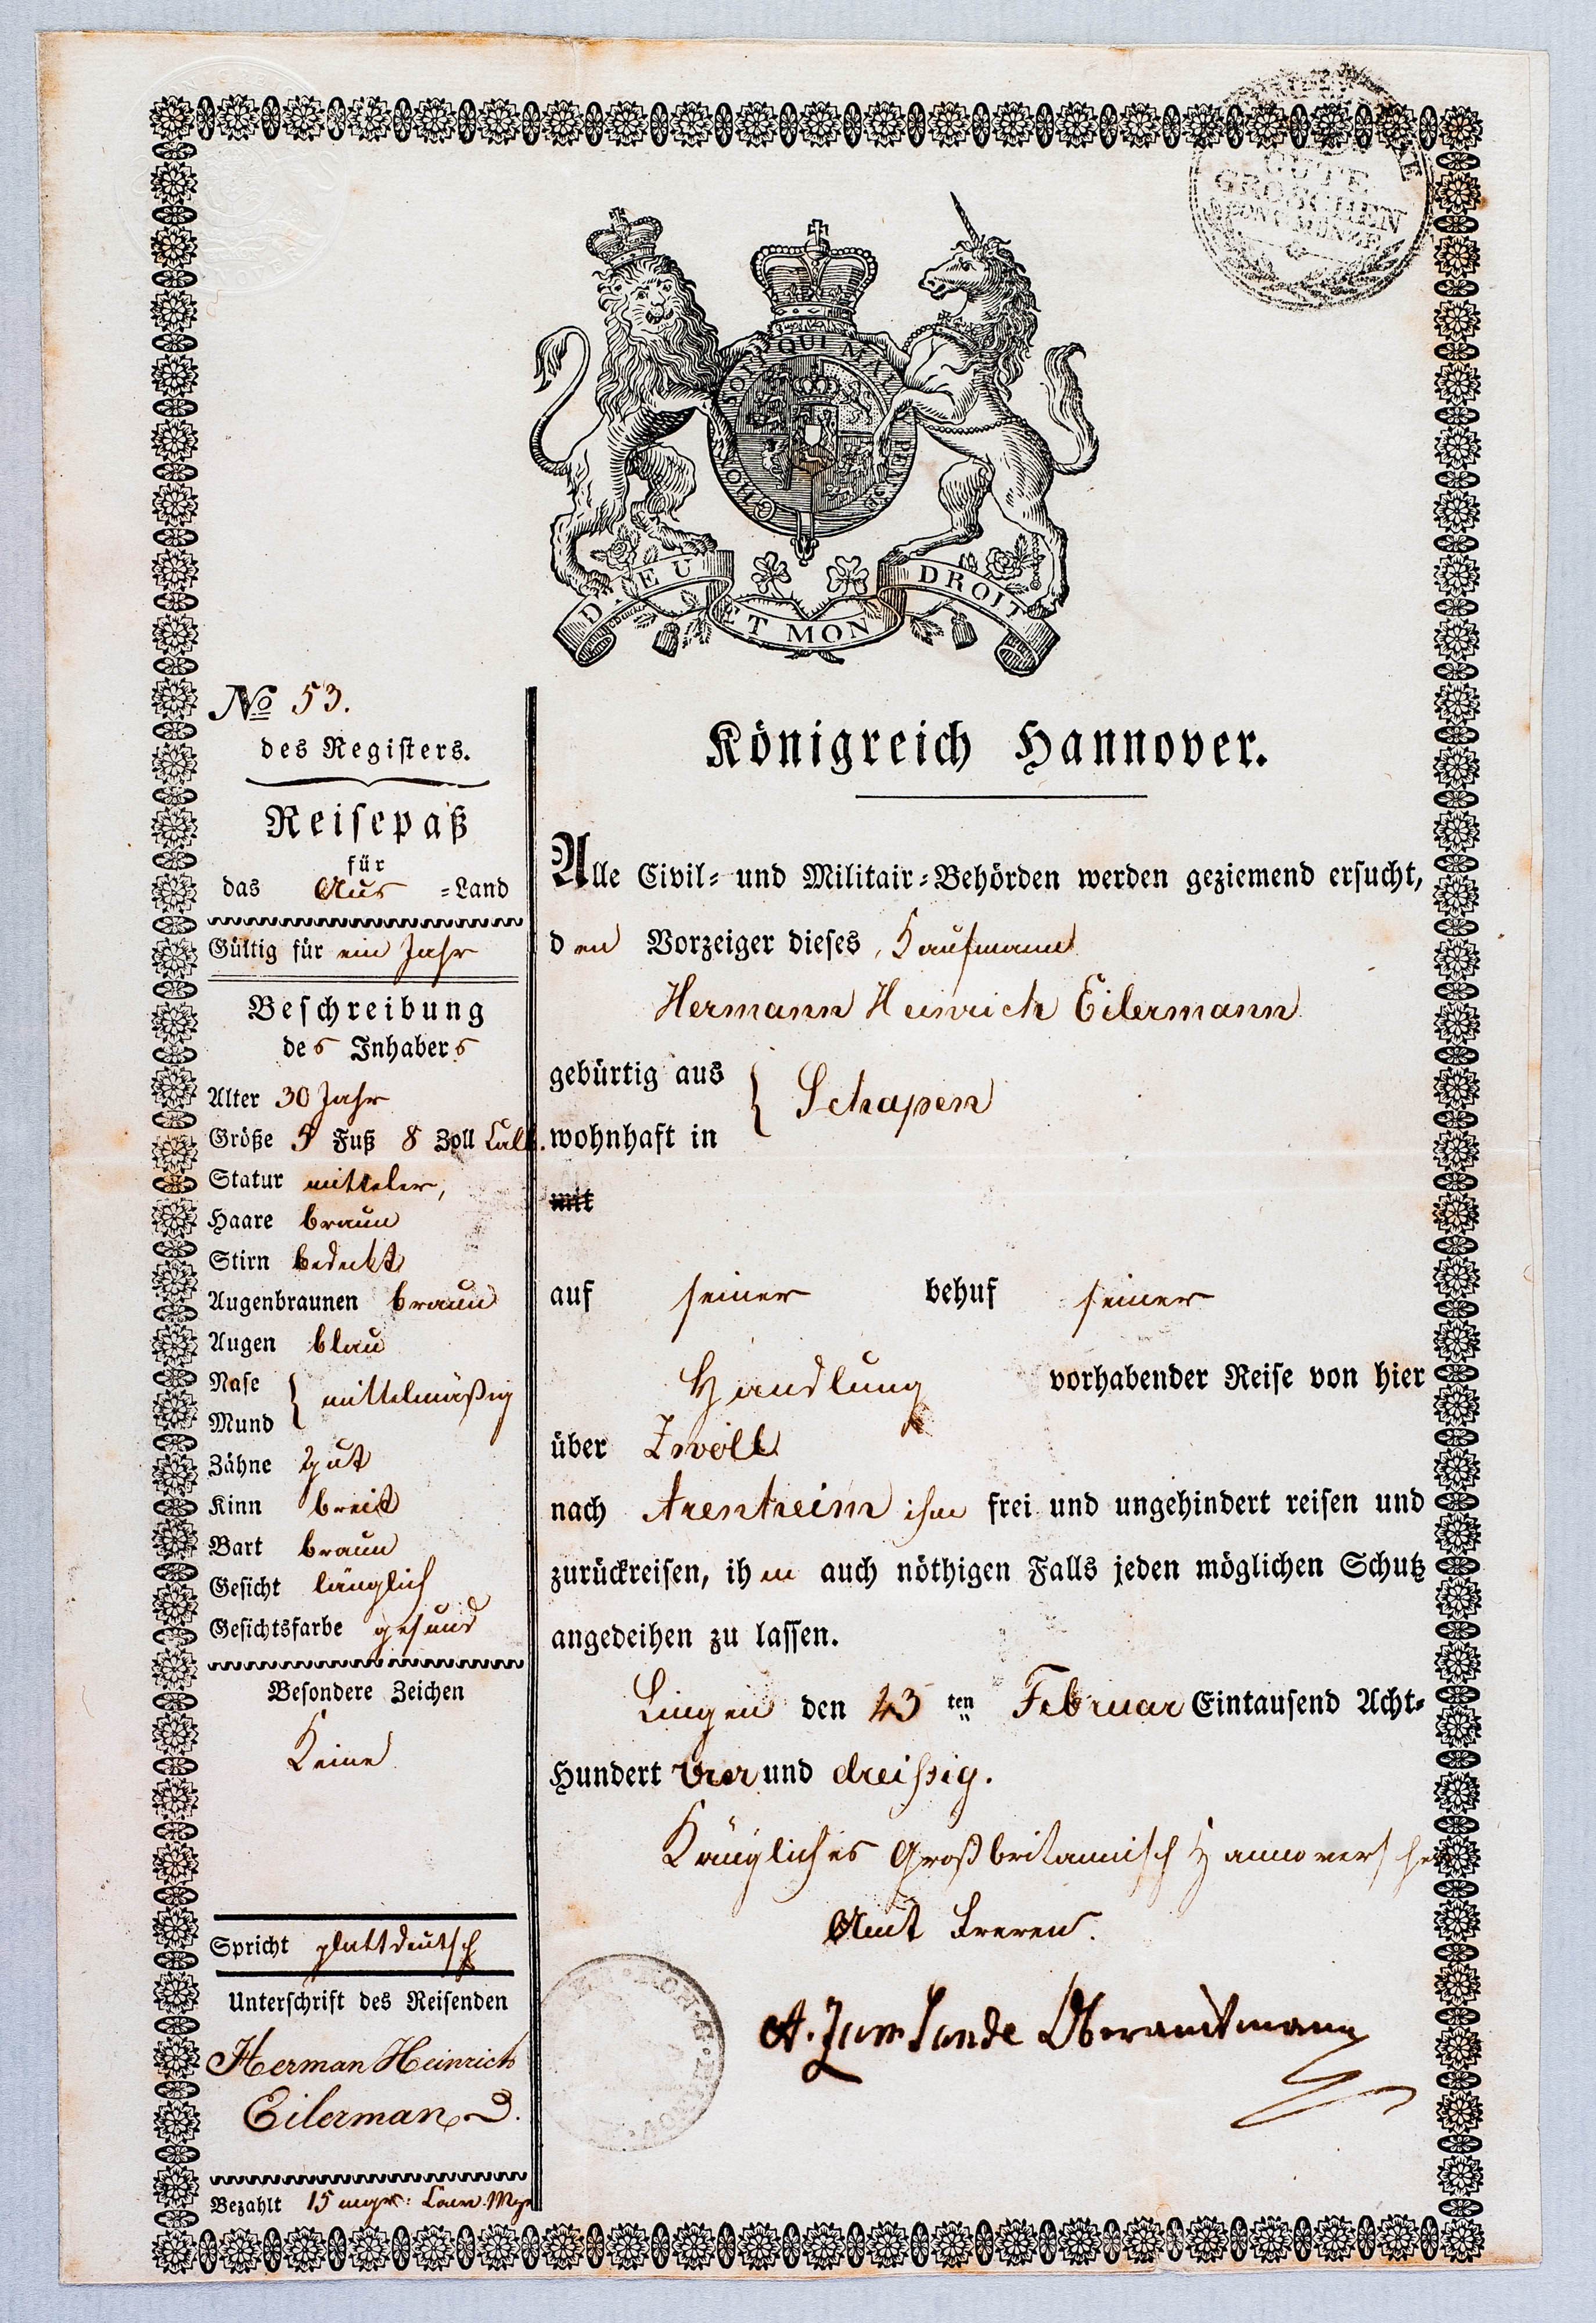 GUTE
GROSCHEN
CONV. MÜNZE
HONI SOIT QUI MAL Y PENSE
DIEU ET MON DROIT
No 53.
des Registers.
Reisepaß
für
das Aus =Land
Gültig für ein Jahr
Beschreibung
des Inhabers
Alter 30 Jahr
Größe 5 Fuß 8 Zoll Call.
Statur mittler,
Haare braun
Stirn bedekt
Augenbraunen braun
Augen blau
Nase
Mund } mittelmäßig
Zähne gut
Kinn breit
Bart braun
Gesicht länglich
Gesichtsfarbe gesund
Besondere Zeichen
Keine
Spricht plattdeutsch
Unterschrift des Reisenden
Herman Heinrich
Eilerman
Bezahlt 15 mgr:
Königreich Hannover.
Alle Civil= und Militair=Behörden werden geziemend ersucht,
den Vorzeiger dieses, Kaufmann
Hermann Heinrich Eilermann
gebürtig aus
wohnhaft in } Schapen
mit
auf seiner behuf seiner
Handlung vorhabender Reise von hier
über Zwoll
nach ihn frei und ungehindert reisen und
zurückreisen, ihm auch nöthigen Falls jeden möglichen Schutz
angedeihen zu lassen.
Lingen den ten Februar Eintausend Acht=
Hundert vier und dreißig.
Königliches Großbritannisch Hannoversches
Amt Freren.
A. Zum Sande Oberamtmann